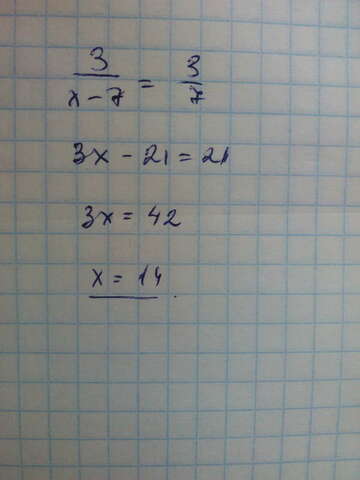 3/(x-7) = 3/7
3x - 21 = 21
3x = 42
x = 14